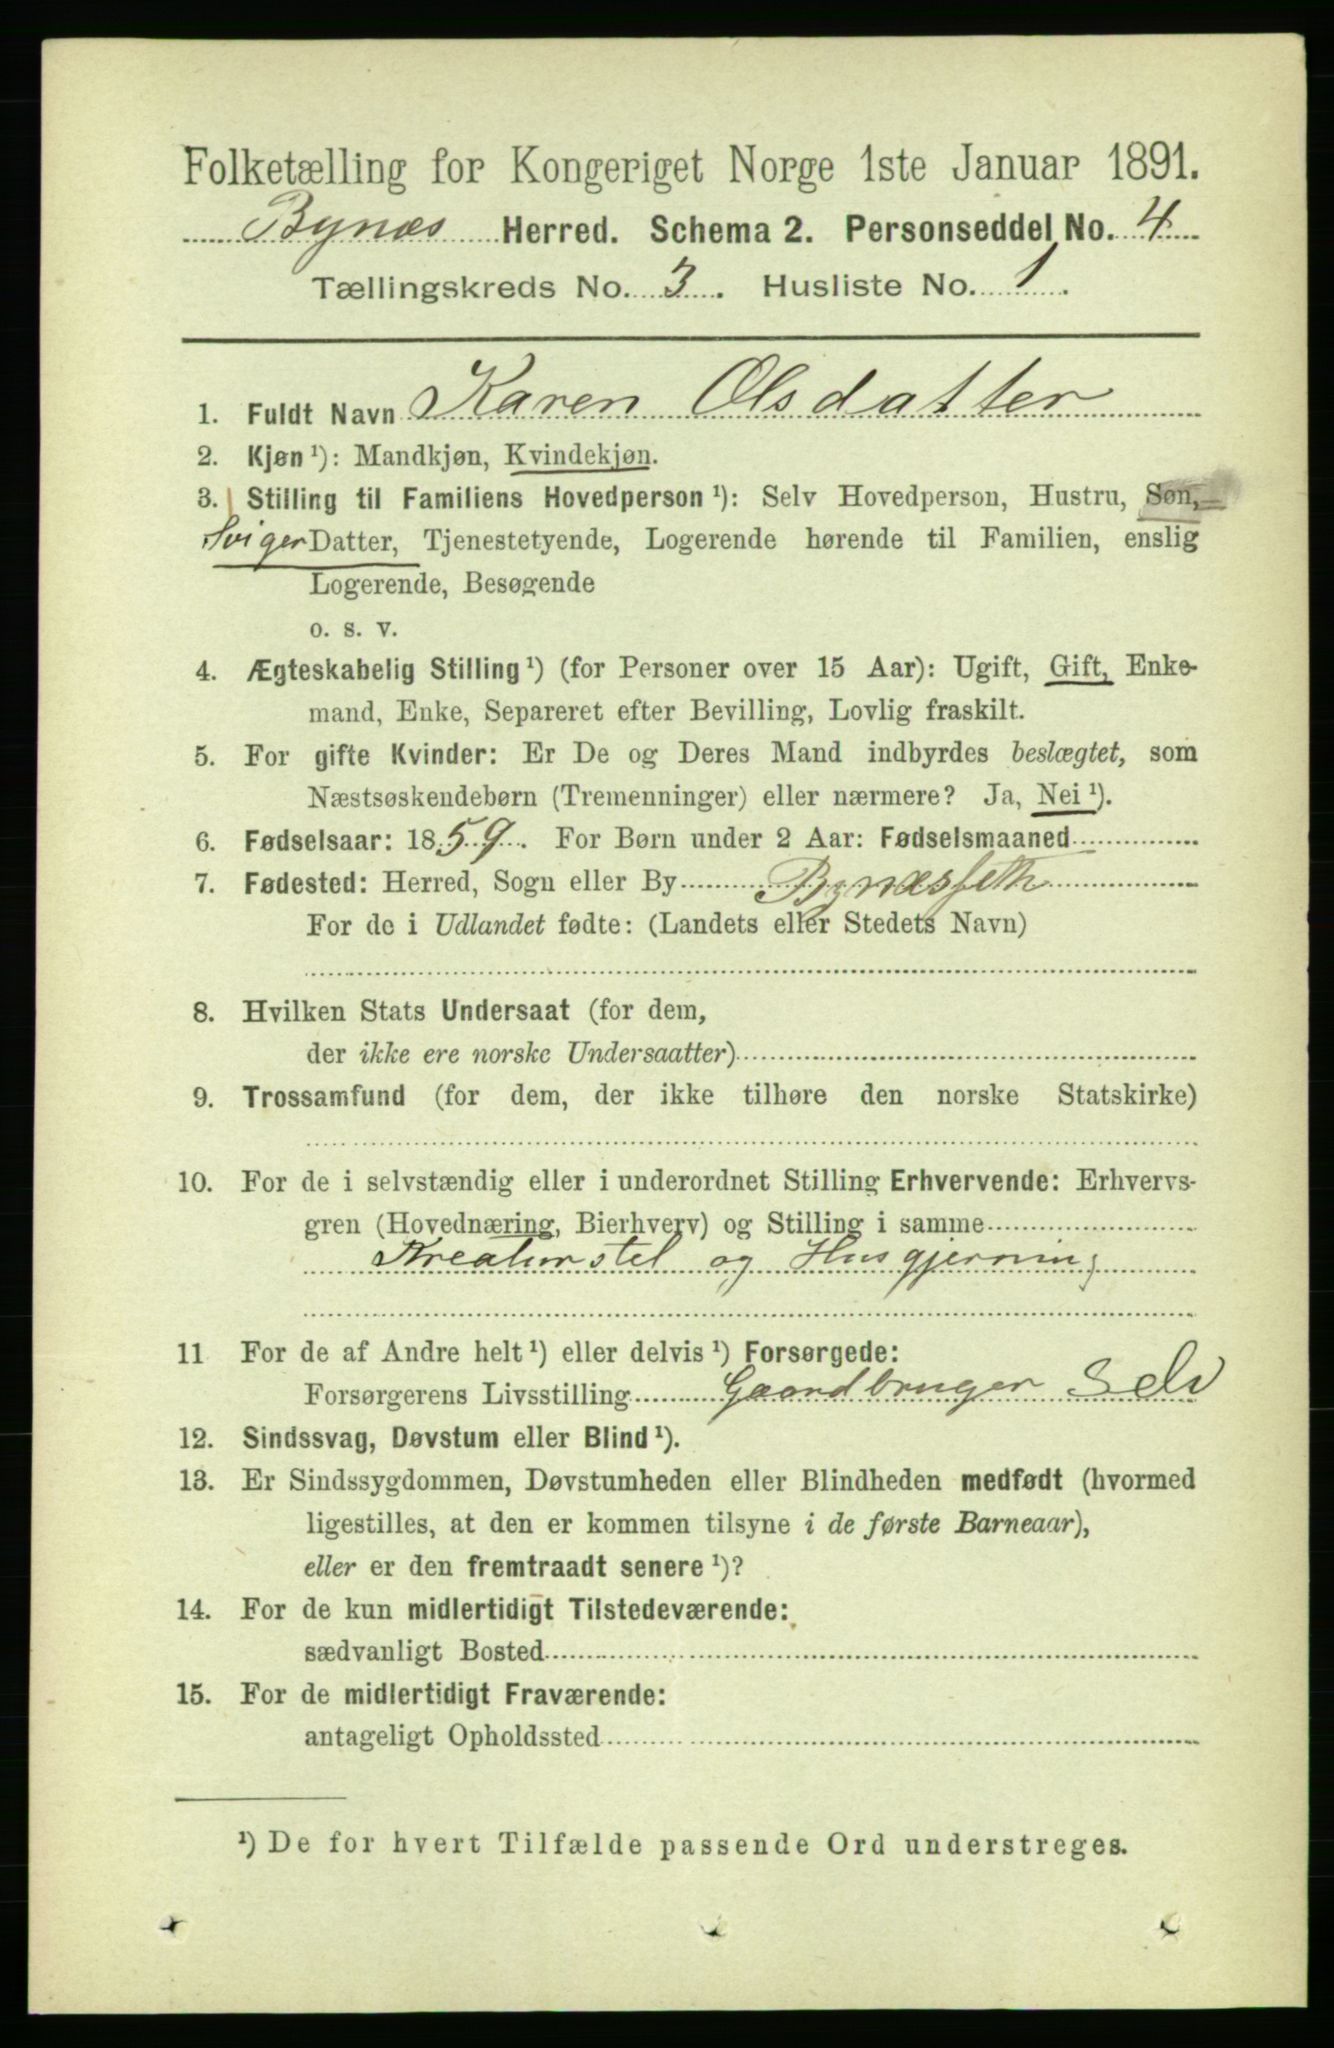 Folketælling for Kongeriget Norge 1ste Januar 1891.
Bynæs Herred. Schema 2. Personseddel No. 4
Tællingskreds No. 3. Husliste No. 1.
1. Fuldt Navn Karen Olsdatter
2. Kjøn ¹): Mandkjøn, Kvindekjøn.
3. Stilling til Familiens Hovedperson ¹): Selv Hovedperson, Hustru, Søn,
Sviger Datter, Tjenestetyende, Logerende hørende til Familien, enslig
Logerende, Besøgende
o. s. v.
4. Ægteskabelig Stilling ¹) (for Personer over 15 Aar): Ugift, Gift, Enke-
mand, Enke, Separeret efter Bevilling, Lovlig fraskilt.
5. For gifte Kvinder: Er De og Deres Mand indbyrdes beslægtet, som
Næstsøskendebørn (Tremenninger) eller nærmere? Ja, Nei ¹).
6. Fødselsaar: 1859. For Børn under 2 Aar: Fødselsmaaned
7. Fødested: Herred, Sogn eller By Bynæsset
For de i Udlandet fødte: (Landets eller Stedets Navn)
8. Hvilken Stats Undersaat (for dem,
der ikke ere norske Undersaatter)
9. Trossamfund (for dem, der ikke tilhøre den norske Statskirke)
10. For de i selvstændig eller i underordnet Stilling Erhvervende: Erhvervs-
gren (Hovednæring, Bierhverv) og Stilling i samme
Kreaturstel og Husgjerning
11 For de af Andre helt ¹) eller delvis ¹) Forsørgede:
Forsørgerens Livsstilling Gaardbruger Selv
12. Sindssvag, Døvstum eller Blind ¹).
13. Er Sindssygdommen, Døvstumheden eller Blindheden medfødt (hvormed
ligestilles, at den er kommen tilsyne i de første Barneaar),
eller er den fremtraadt senere ¹)?
14. For de kun midlertidigt Tilstedeværende:
sædvanligt Bosted
15. For de midlertidigt Fraværende:
antageligt Opholdssted
¹) De for hvert Tilfælde passende Ord understreges.